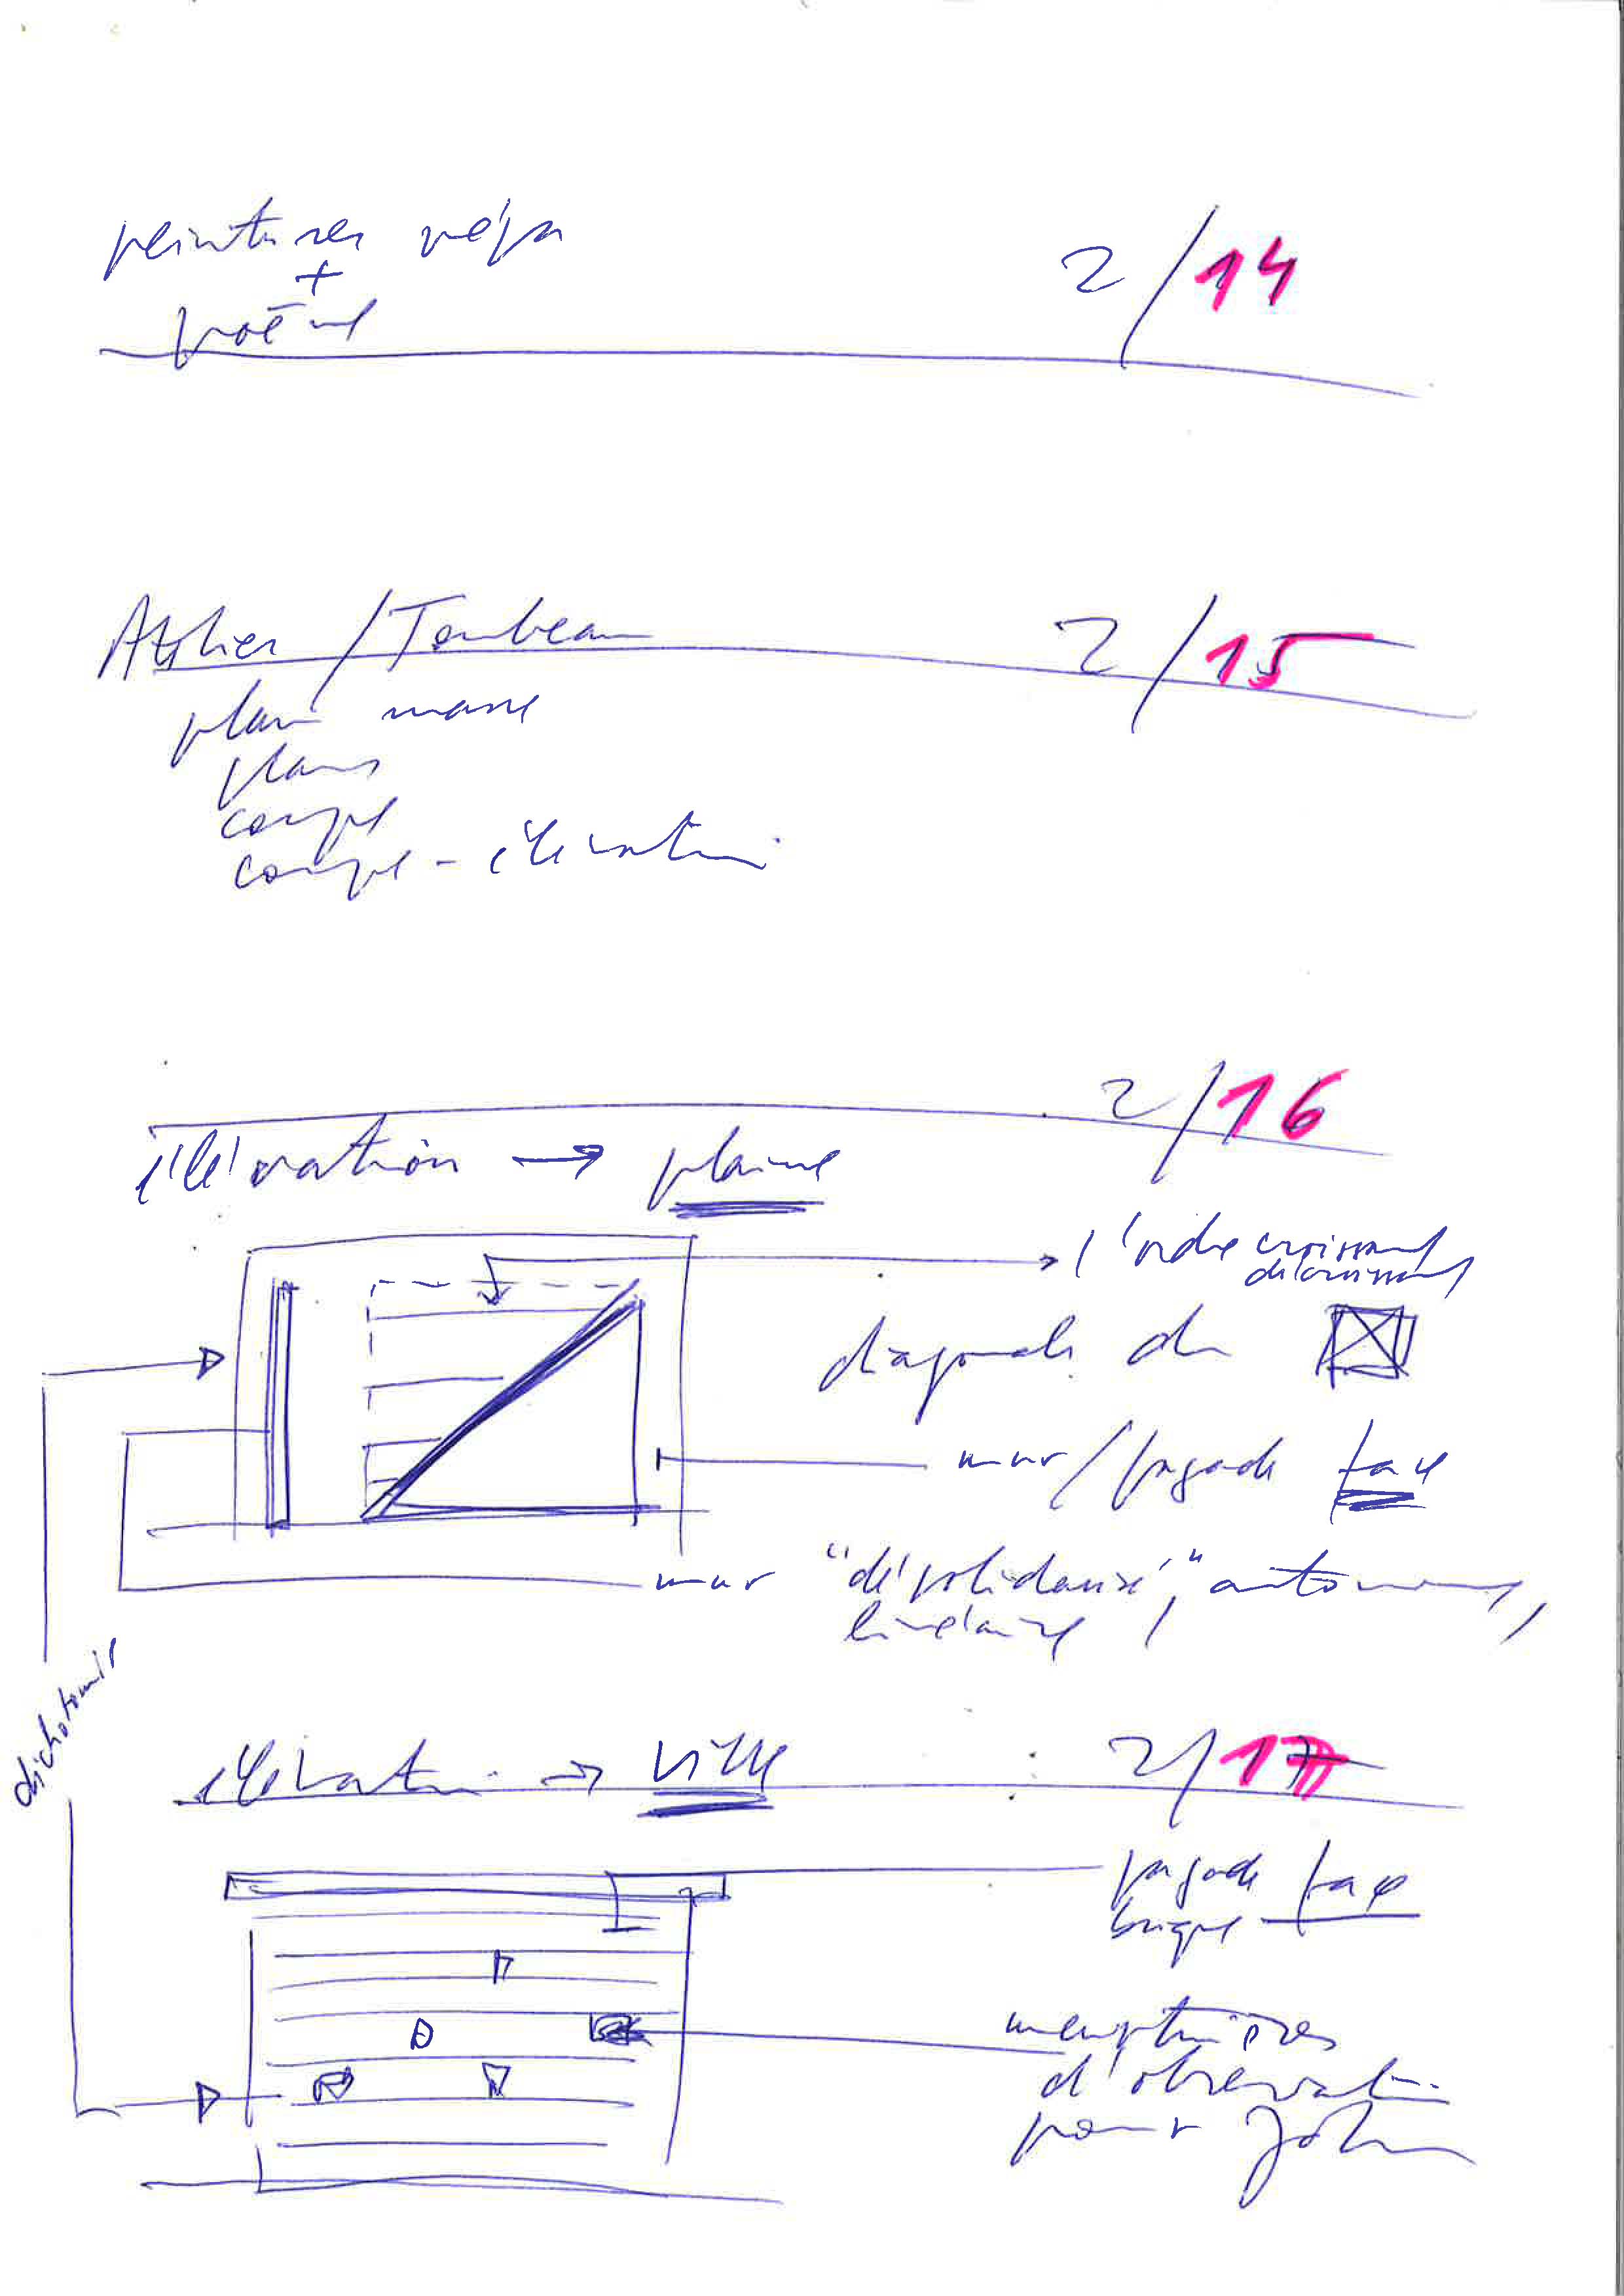 peintures
+
poème
2/14
Atelier / Tombeau 2/15
plan masse
plans
coupe
coupe - élévation
2/16
élévation → plaine
l'ordre croissant
décroissant
diagonale du
mur / façade face
mur "désolidarisé", autonome,
linéaire,
dichotomie
élévation → ville 2/17
façade face
brique
meurtrières
d'observation
pour John